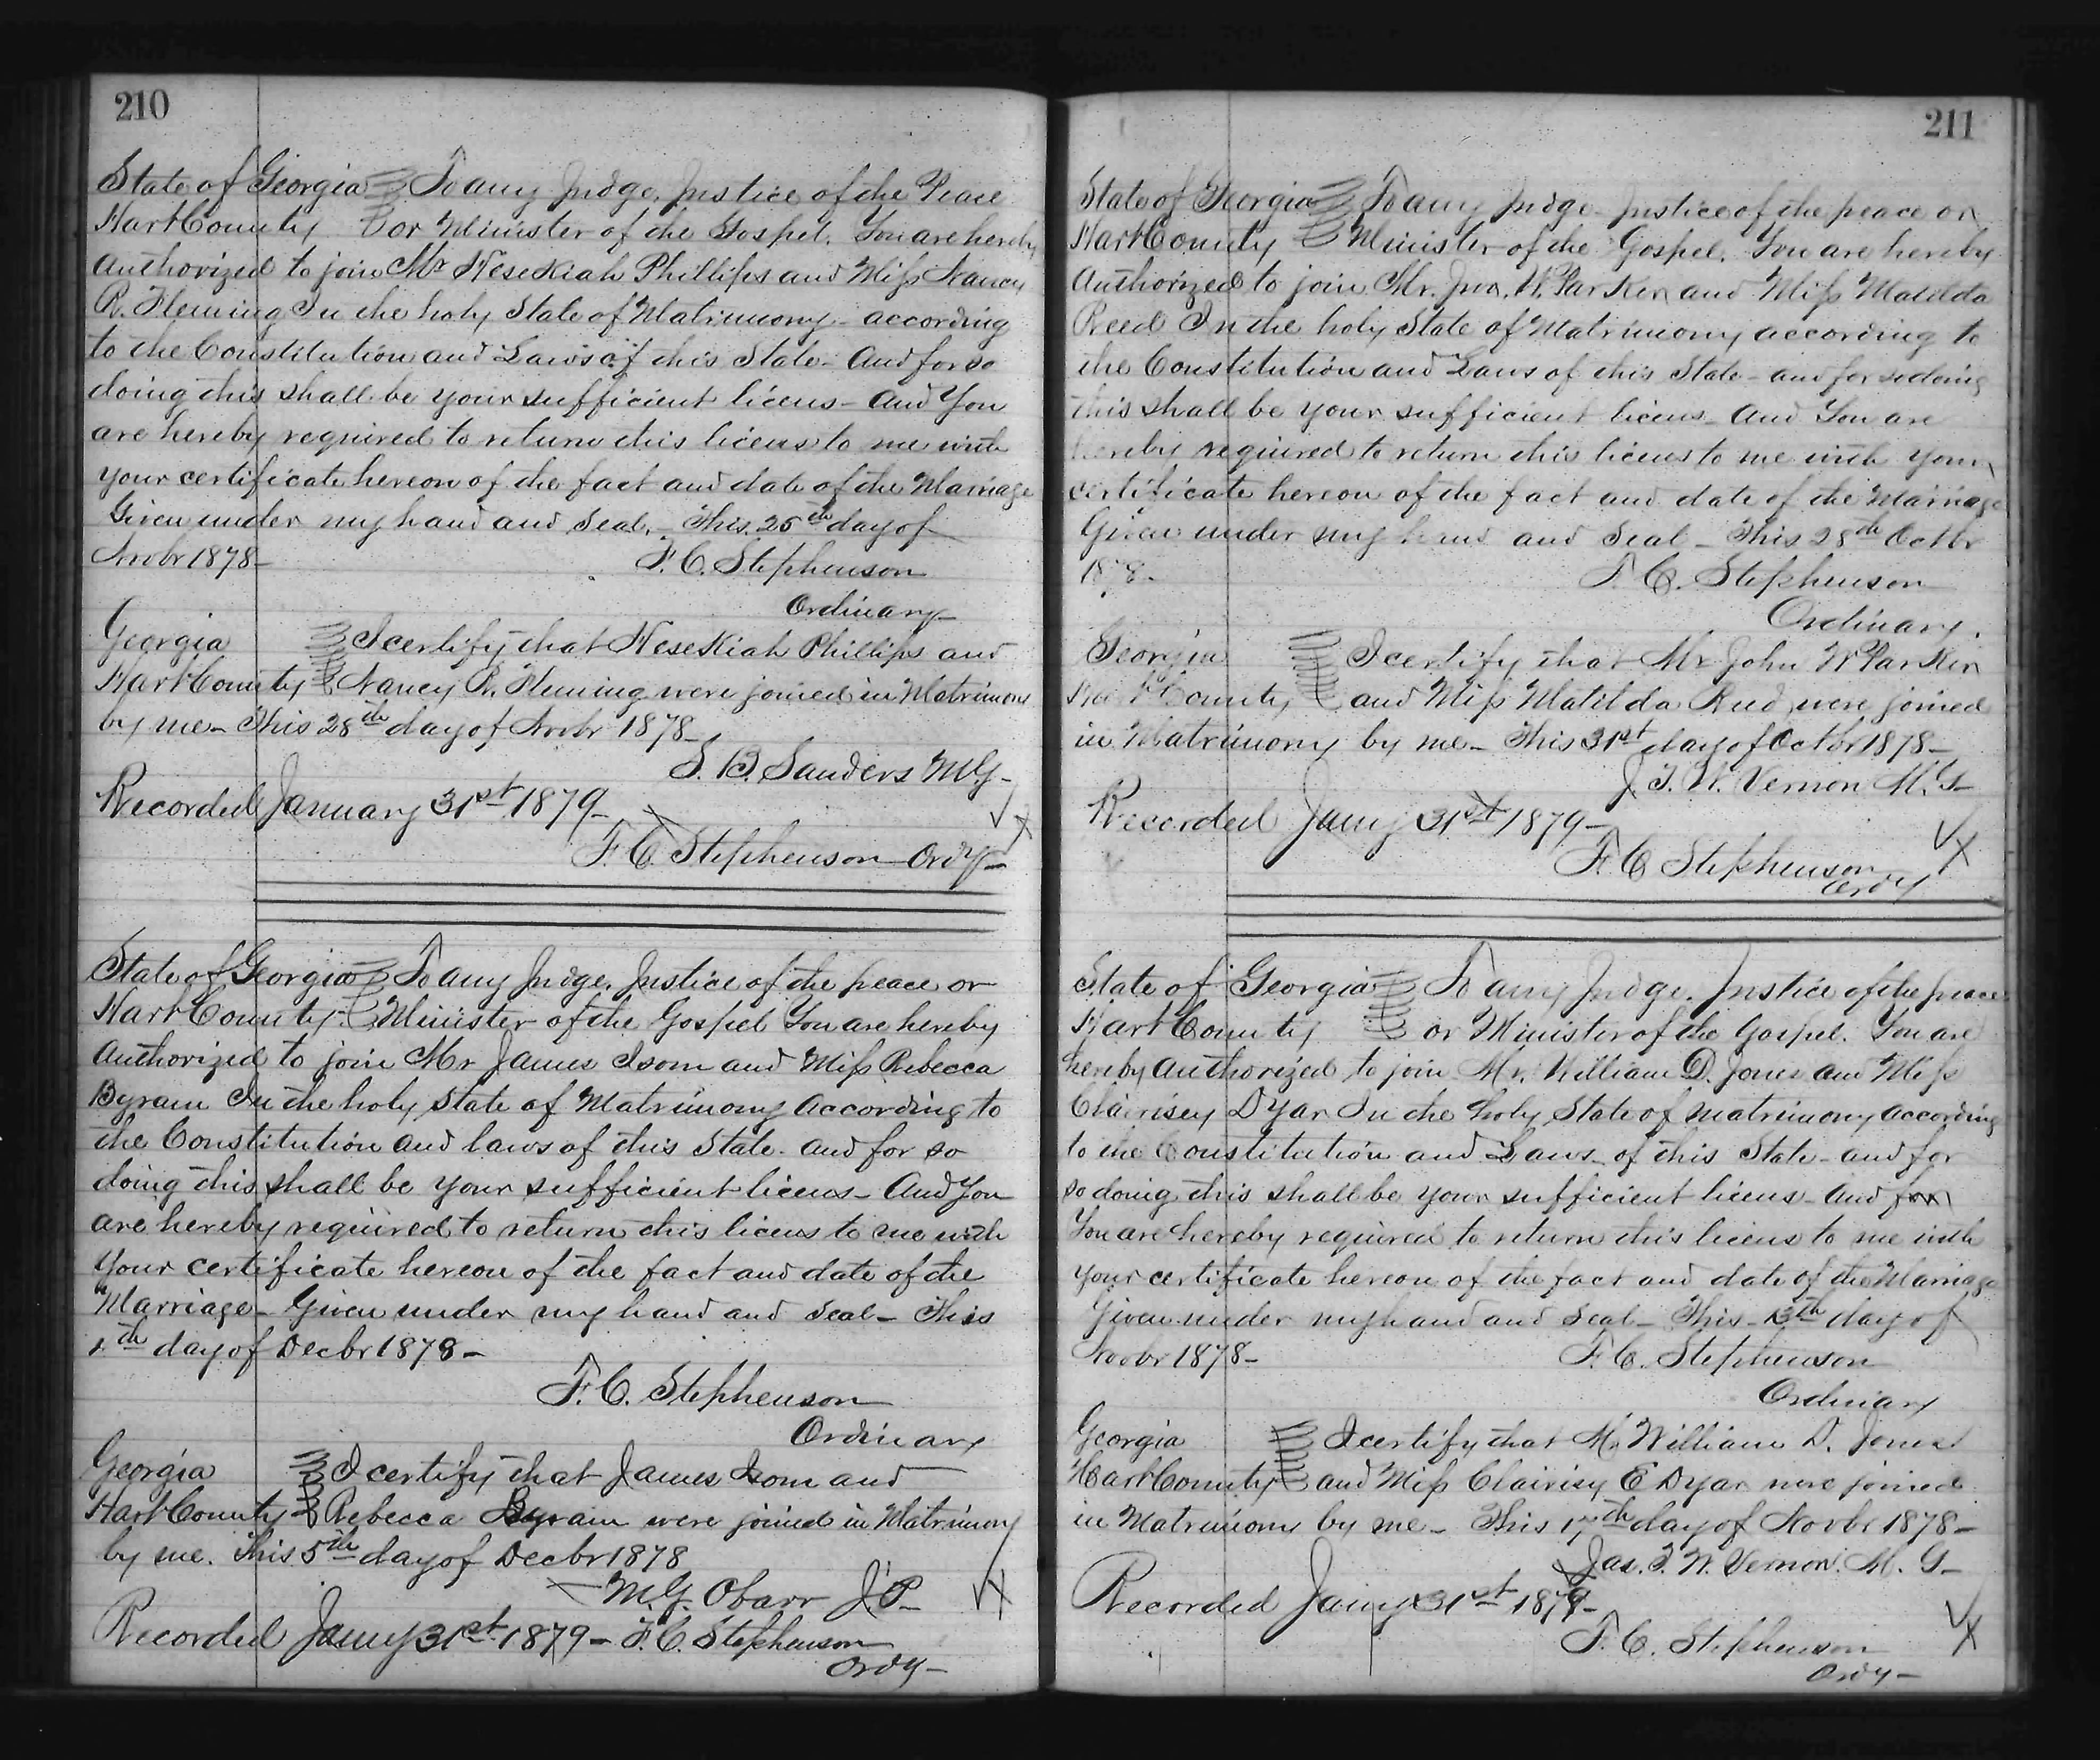 210
State of Georgia To any Judge, Justice of the Peace
Hart County or Minister of the Gospel. You are hereby
Authorized to join Mr Hesekiah Phillips and Miss Nancy
R. Fleming In the holy State of Matrimony according
to the Constitution and Laws of this State. And for so
doing this shall be your sufficient licens - And You
are hereby required to return this licens to me with
your certificate hereon of the fact and date of the Marriage
Given under my hand and seal. This 26th day of
Novbr 1878 -
F. C. Stephenson
Ordinary
Georgia I certify that Hesekiah Phillips and
Hart County Nancy R. Fleming were joined in Matrimony
by me - This 28th day of Novbr 1878 -
S. B. Sanders M G -
Recorded January 31st 1879 -
F. C. Stephenson Ordy -
State of Georgia To any Judge, Justice of the peace or
Hart County. Minister of the Gospel You are hereby
Authorized to join Mr James Isom and Miss Rebecca
Byram In the holy State of Matrimony According to
the Constitution and laws of this State. and for so
doing this shall be your sufficient licens - And You
are hereby required to return this licens to me with
Your certificate hereon of the fact and date of the
Marriage - Given under my hand and seal - This
day of Decbr 1878 -
F. C. Stephenson
Ordinary
Georgia I certify that James Isom and
Hart County Rebecca Byram were joined in Matrimony
by me. This 5th day of Decbr 1878
M. G. Obarr J. P.
Recorded Jany 31st 1879 - F. C. Stephenson
Ordy -
211
State of Georgia To any Judge Justice of the peace or
Hart County Minister of the Gospel. You are hereby
Authorized to join Mr. Jno. W. Parker and Miss Matilda
Reed In the holy State of Matrimony according to
the Constitution and Laws of this State - and for so doing
this shall be your sufficient licens - And You are
hereby required to return this licens to me with your
certificate hereon of the fact and date of the Marriage
Given under my hand and Seal - This 28th Octbr
1878 -
F. C. Stephenson
Ordinary.
Georgia I certify that Mr John W Parker
Hart County and Miss Matilda Reed were joined
in Matrimony by me - This 31st day of Octbr 1878 -
J. T. W. Vernon M. G -
Recorded Jany 31st 1879 -
F. C Stephenson
Ordy
State of Georgia To any Judge. Justice of the peace
Hart County or Minister of the Gospel. You are
hereby Authorized to join Mr. William D. Jones and Miss
Clairisey Dyar In the holy State of matrimony according
to the Constitution and Laws of this State - and for
so doing this shall be your sufficient licens - And for
You are hereby required to return this licens to me with
your certificate hereon of the fact and date of the Marriage
Given under my hand and seal - This 13th day of
Novbr 1878 -
F. C. Stephenson
Ordinary
Georgia I certify that Mr William D. Jones
Hart County and Miss Clairisy E Dyar were joined
in Matrimony by me - This 17th day of Novbr 1878 -
Jas. T. W. Vernon. M. G -
Recorded Jany 31st 1879 -
F. C. Stephenson
Ordy -